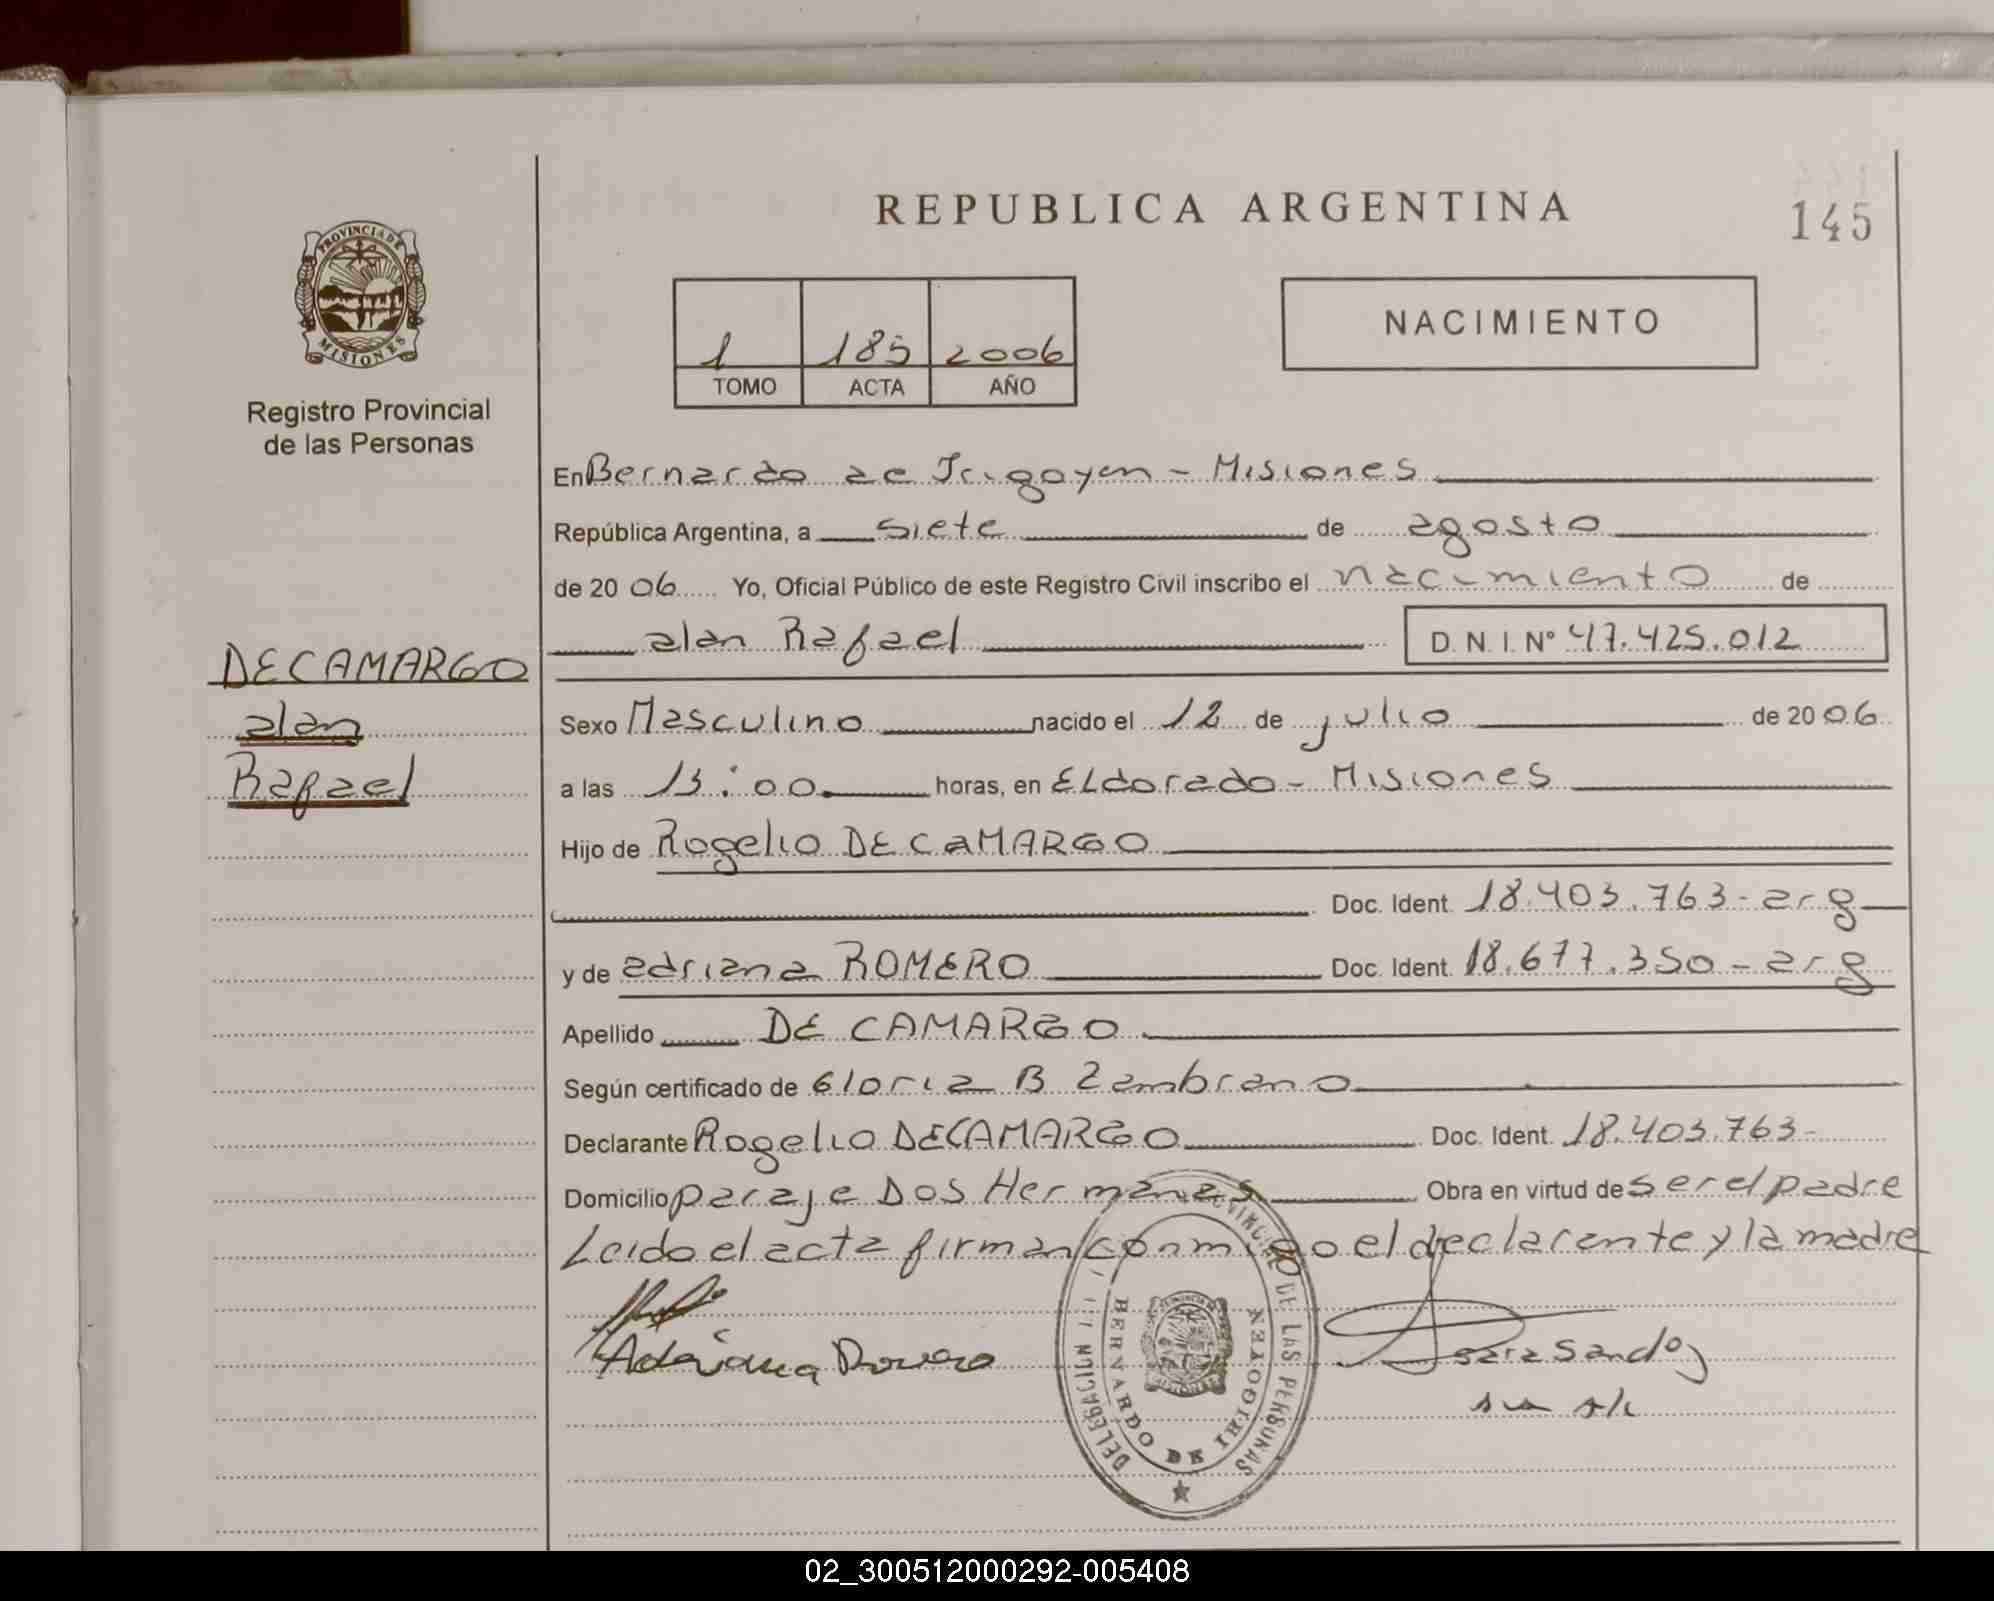 REPUBLICA ARGENTINA
145
PROVINCIA DE MISIONES
Registro Provincial
de las Personas
1 185 2006
TOMO ACTA AÑO
NACIMIENTO
En Bernardo de Irigoyen - Misiones
República Argentina, a siete de agosto
de 20 06 Yo, Oficial Público de este Registro Civil inscribo el nacimiento de
alan Rafael D. N. I. Nº 47.425.012
DECAMARGO
alan
Rafael
Sexo Masculino nacido el 12 de julio de 20 06
a las 13:00 horas, en Eldorado - Misiones
Hijo de Rogelio DE CaMARGO
Doc. Ident. 18.403.763 - arg
y de adriana ROMERO Doc. Ident. 18.677.350 - arg
Apellido DE CAMARGO
Según certificado de Gloria B Zambrano
Declarante Rogelio DECAMARGO Doc. Ident. 18.403.763 -
Domicilio paraje Dos Hermanas Obra en virtud de ser el padre
Leido el acta firman conmigo el declarente y la madre
Adriana Romero
DE LAS PERSONAS
DELEGACION
BERNARDO DE IRIGOYEN
02_300512000292-005408